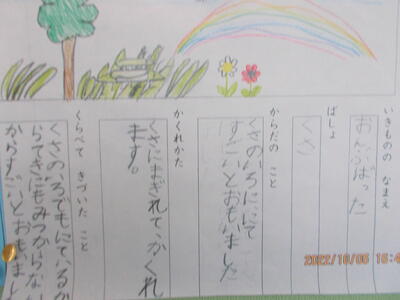 いきものの なまえ
おんぶばった
ばしょ
くさ
からだの こと
くさのいろににて
すごいとおもいました
かくれかた
くさにまぎれてかくれ
ます。
くらべて きづいた こと
くさのいろでもにているか
らてきにもみつからない
からすごいとおもいまし
2022/10/06